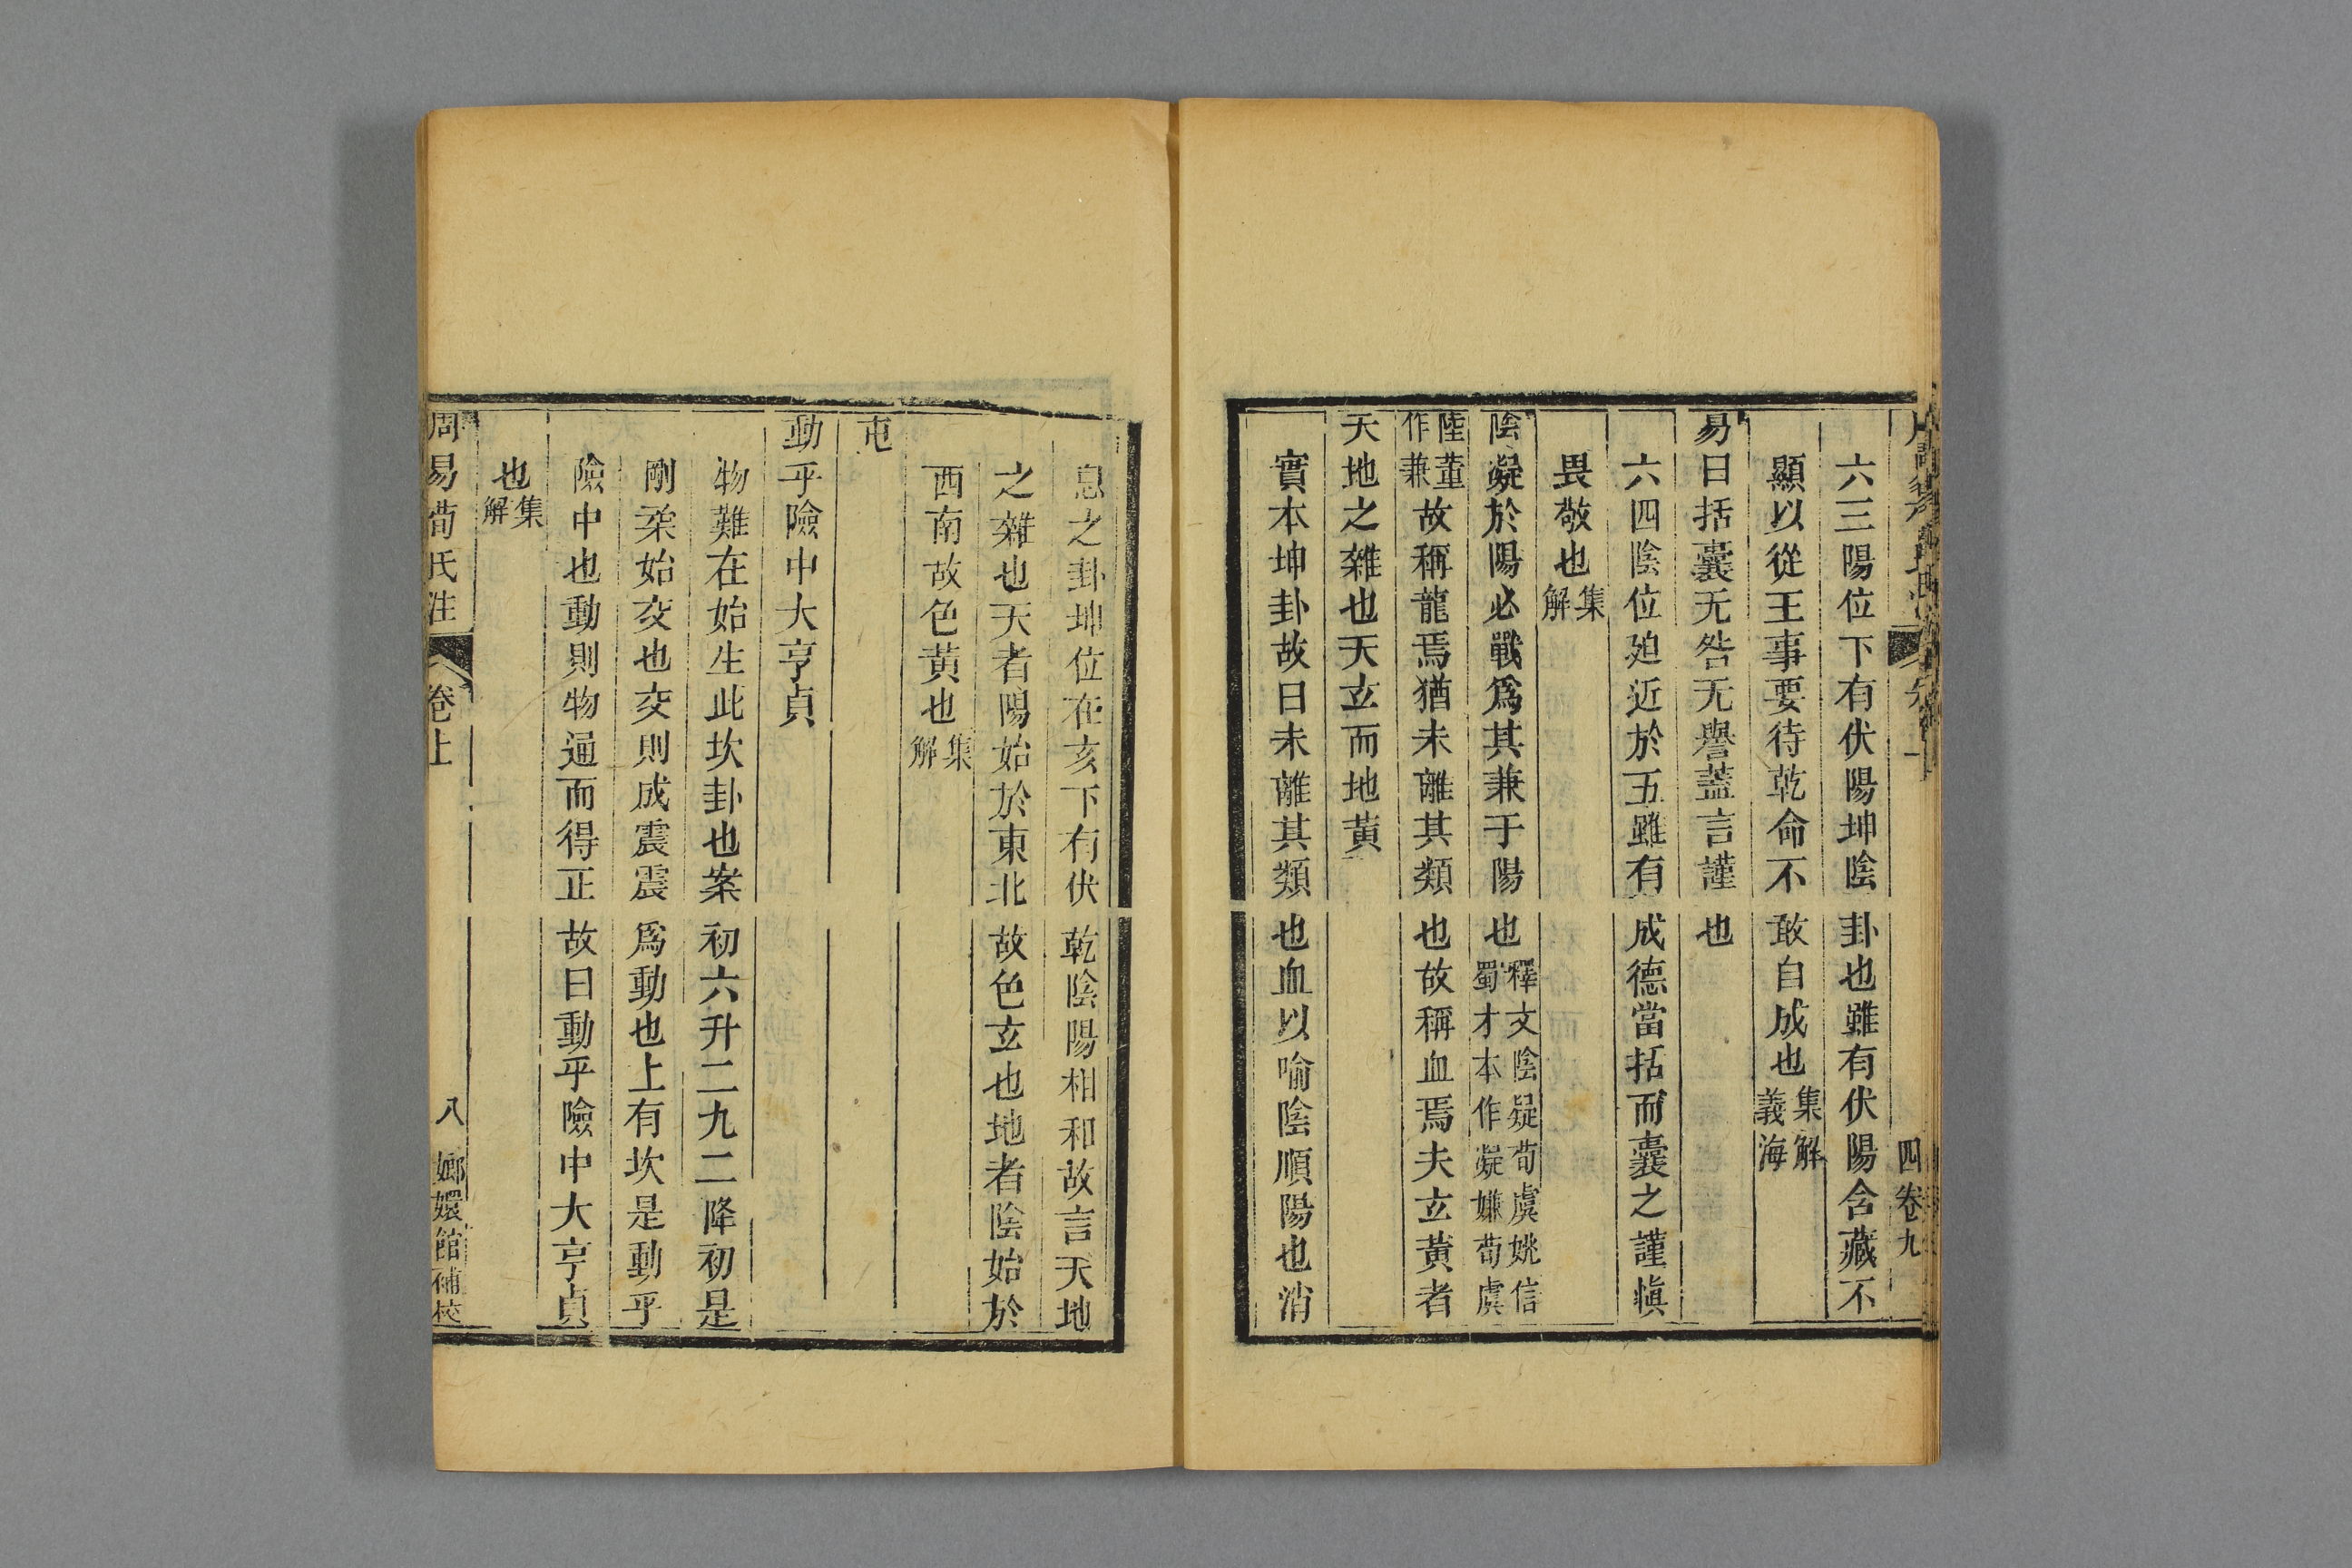 四卷九
六三陽位下有伏陽坤陰卦也雖有伏陽含藏不
顯以從王事要待乾命不敢自成也集解義海
易曰括囊无咎无譽蓋言謹也
六四陰位廹近於五雖有成德當括而囊之謹愼
畏敬也集解
陰凝於陽必戰爲其兼于陽也釋文陰疑荀虞姚信蜀才本作凝嫌荀虞
陸董作兼故稱龍焉猶未離其類也故稱血焉夫玄黃者
天地之雜也天玄而地黃
實本坤卦故曰未離其類也血以喻陰順陽也消
息之卦坤位在亥下有伏乾陰陽相和故言天地
之雜也天者陽始於東北故色玄也地者陰始於
西南故色黃也集解
屯
動乎險中大亨貞
物難在始生此坎卦也案初六升二九二降初是
剛柔始交也交則成震震爲動也上有坎是動乎
險中也動則物通而得正故曰動乎險中大亨貞
也集解
周易荀氏注 卷上 八 嫏嬛館補校